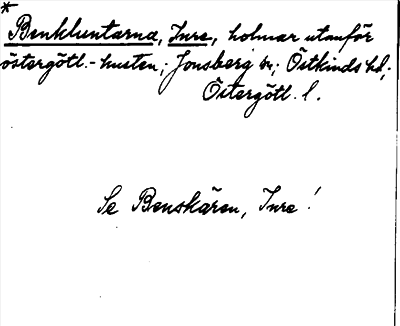 *
Benkluntarna, Inre, holmar utanför
östergötl.-kusten; Jonsberg sn; Östkinds hd;
Östergötl. l.
Se Benskären, Inre!